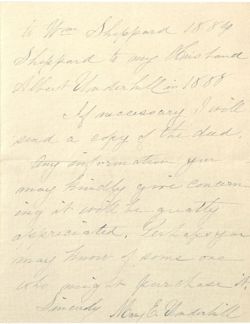 to Wm Sheppard 1884
Sheppard to my Husband
Albert Underhill in 1888
If necessary I will
send a copy of the deed
Any information you
may kindly give concern
ing it will be greatly
appreciated. Perhaps you
may know of some one
who might purchase it.
Sincerely Mary E. Underhill